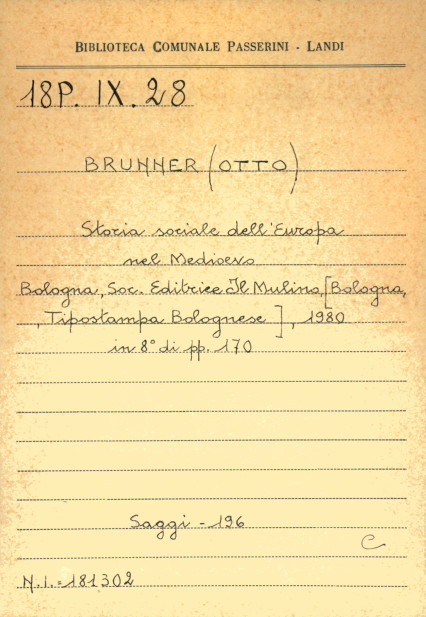 BIBLIOTECA COMUNALE PASSERINI - LANDI
18P. IX. 28
BRUNNER (OTTO)
Storia sociale dell'Europa
nel Medioevo
Bologna, Soc. Editrice Il Mulino, [Bologna,
, Tipostampa Bolognese ], 1980
in 8° di pp. 170
Saggi - 196
C
N.I. = 181302